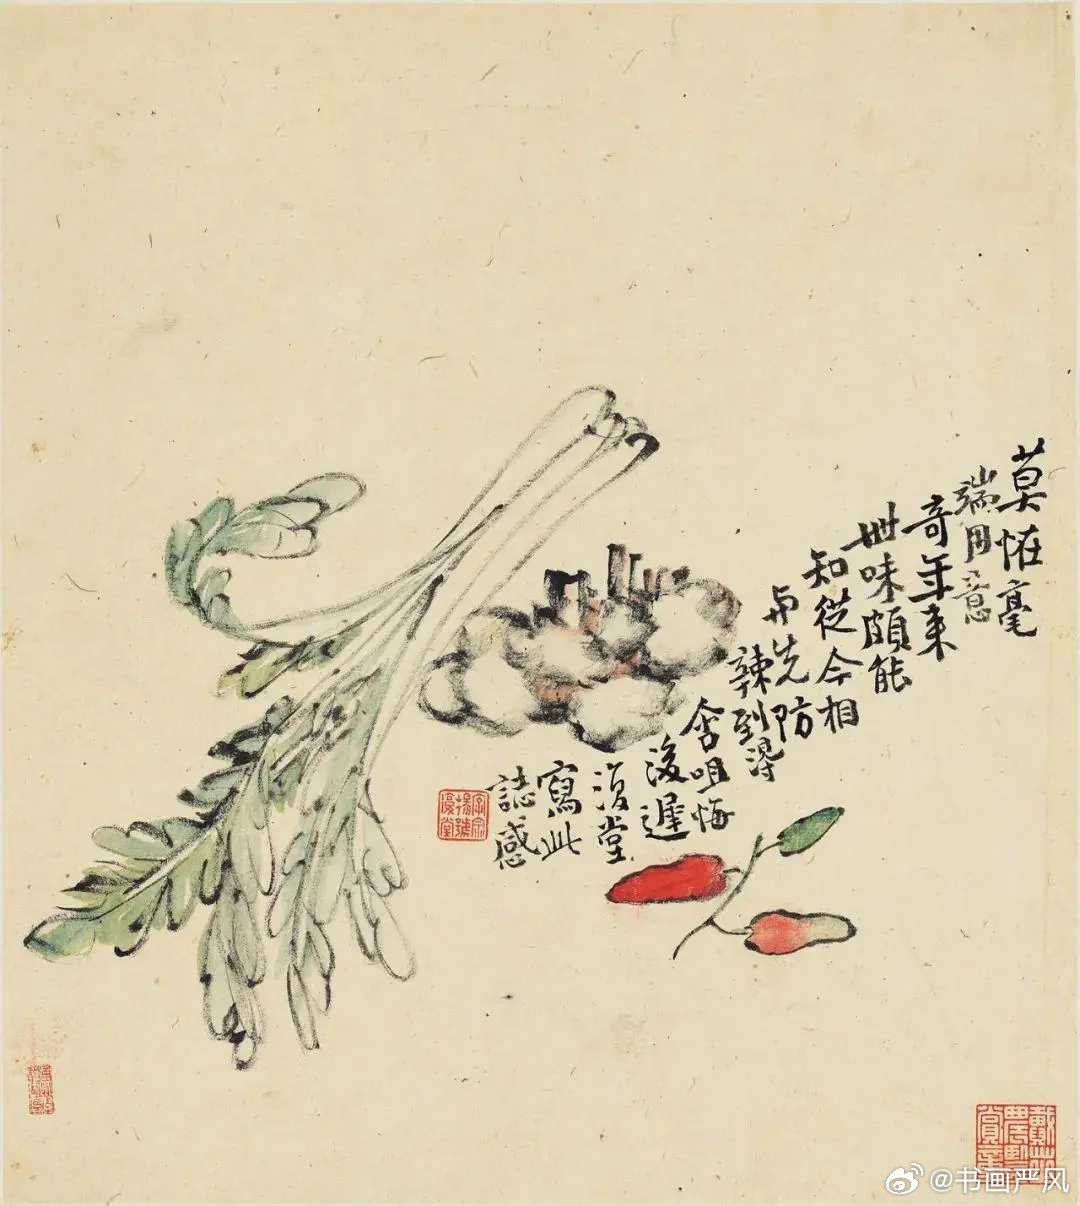 莫恠毫
端用意
奇年来
世味頗能
知從今相
与先防
辣到得
含咀悔
後遲
復堂
寫此
誌感
@书画严风